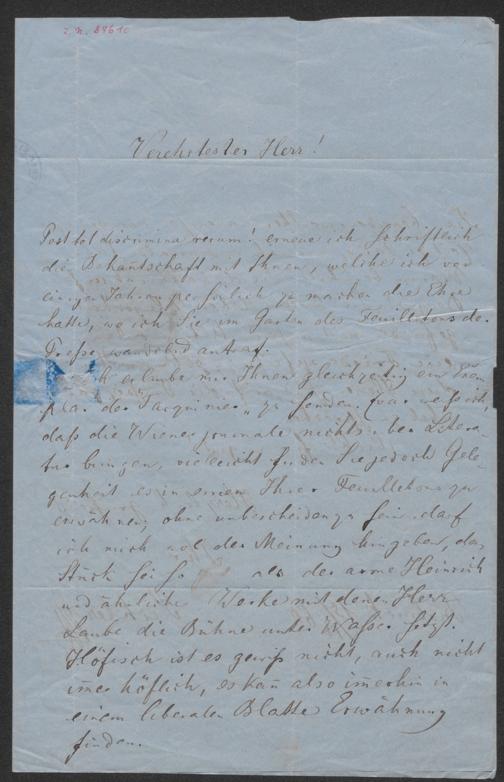 z. N. 28610
Verehrtester Herr!
Post tot discrimina rerum! erneue ich schriftlich
die Bekan̄tschaft mit Ihnen, welche ich vor
einigen Jahren persönlich zu machen die Ehre
hatte, wo ich Sie im Garten des Feuilletons der
Presse wandelnd antraf.
Ich erlaube mir Ihnen gleichzeitig ein Exem
plar der Tarquinier zu senden, zwar weiß ich,
daß die Wiener Journale nichts über Litera-
tur bringen, vielleicht finden Sie jedoch Gele-
genheit es in einem Ihrer Feuilletons zu
erwähnen; ohne unbescheiden zu sein darf
ich mich wol der Meinung hingeben, das
Stück sei so als der arme Heinrich
und ähnliche Werke mit denen Herr
Laube die Bühne unter Wasser setzt.
Höfisch ist es gewiß nicht, auch nicht
im̄er höflich, es kan̄ also im̄erhin in
einem liberalen Blatte Erwähnung
finden.